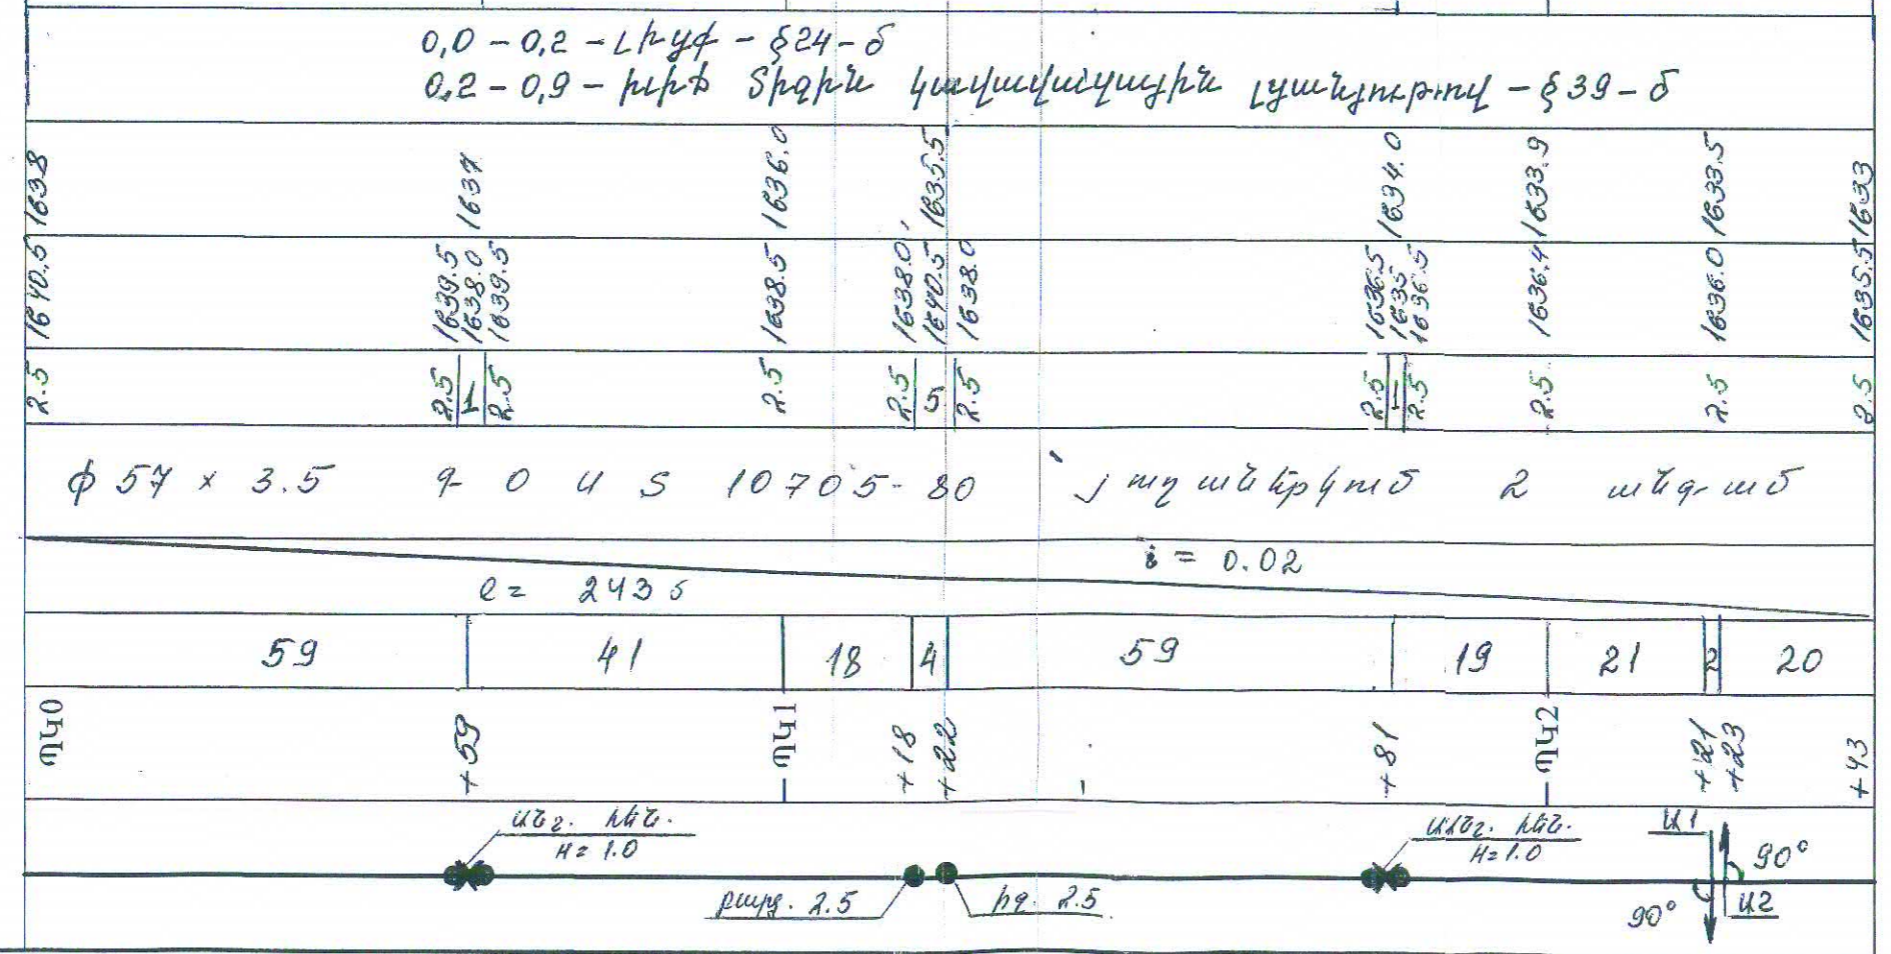 0,0 - 0,2 - Լիցք - §24 - ծ
0,2 - 0,9 - խիճ կավավազային լցանյութով - §39 - ծ
1638 1637 1636.0 1635.5 1634.0 1633.9 1633.5 1633
1640.5 1639.5 1638.0 1639.5 1638.5 1638.0 1640.5 1638.0 1636.5 1635 1636.5 1636.4 1636.0 1635.5
2.5 2.5 1 2.5 2.5 2.5 5 2.5 2.5 1 2.5 2.5 2.5 2.5
ф 57 x 3.5 ԳՕՍՏ 10705-80 յուղաներկում 2 անգամ
i = 0.02
l = 243 մ
59 41 18 4 59 19 21 2 20
ՊԿ0 +59 ՊԿ1 +18 +22 +81 ՊԿ2 +21 +23 +43
անշ. հեն. անշ. հեն. Ա1
H=1.0 H=1.0 90°
բարձ. 2.5 իջ. 2.5 90° Ա2